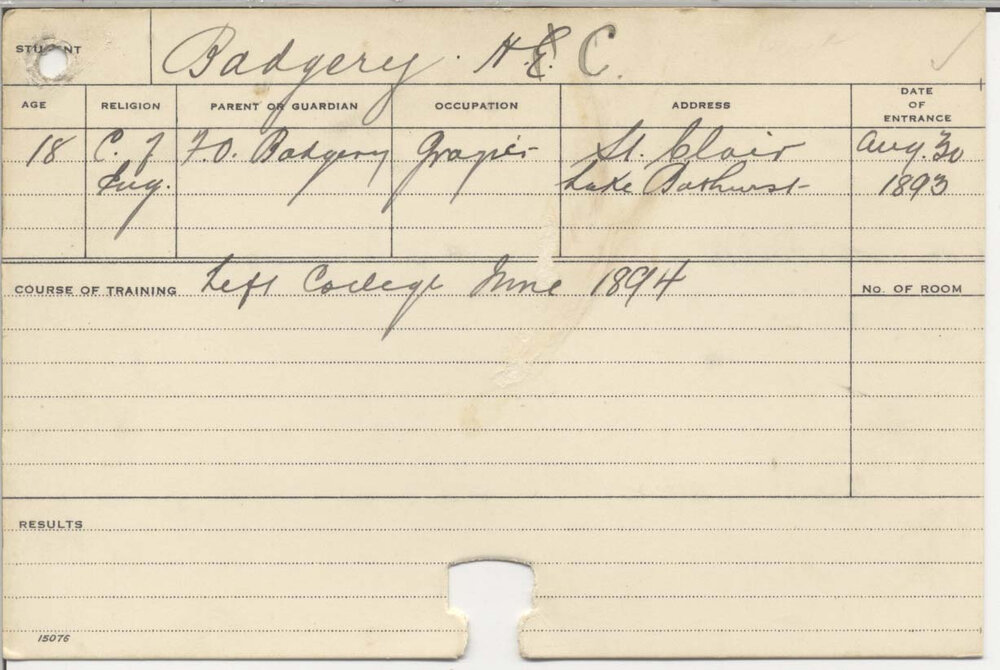 STUDENT Badgery. H.E. C.
AGE RELIGION PARENT OR GUARDIAN OCCUPATION ADDRESS DATE OF ENTRANCE
18 C. of F.O. Badgery Grazier St. Clair Aug. 30
Eng. Lake Bathurst 1893
COURSE OF TRAINING Left College June 1894 No. OF ROOM
RESULTS
15076